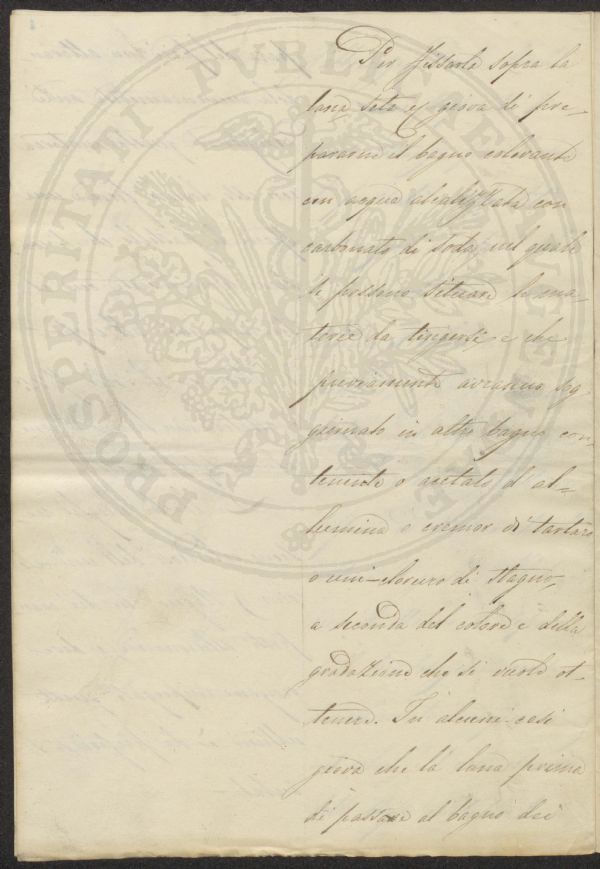 Per fissarla sopra la
lana, seta ec giova di pre-
pararne il bagno colorante
con acqua alcalizzata con
carbonato di soda, nel quale
si possono situare le ma-
terie da tingersi, e che
previamente avranno sog-
giornato in altro bagno con-
tenente o acetato d'al-
lumina o cremor di tartaro
o uni-cloruro di stagno,
a seconda del colore e della
gradazione che si vuole ot-
tenere. In alcuni casi
giova che la lana prima
di passare al bagno dei
PROSPERITATI PUBLICAE AUGENDAE